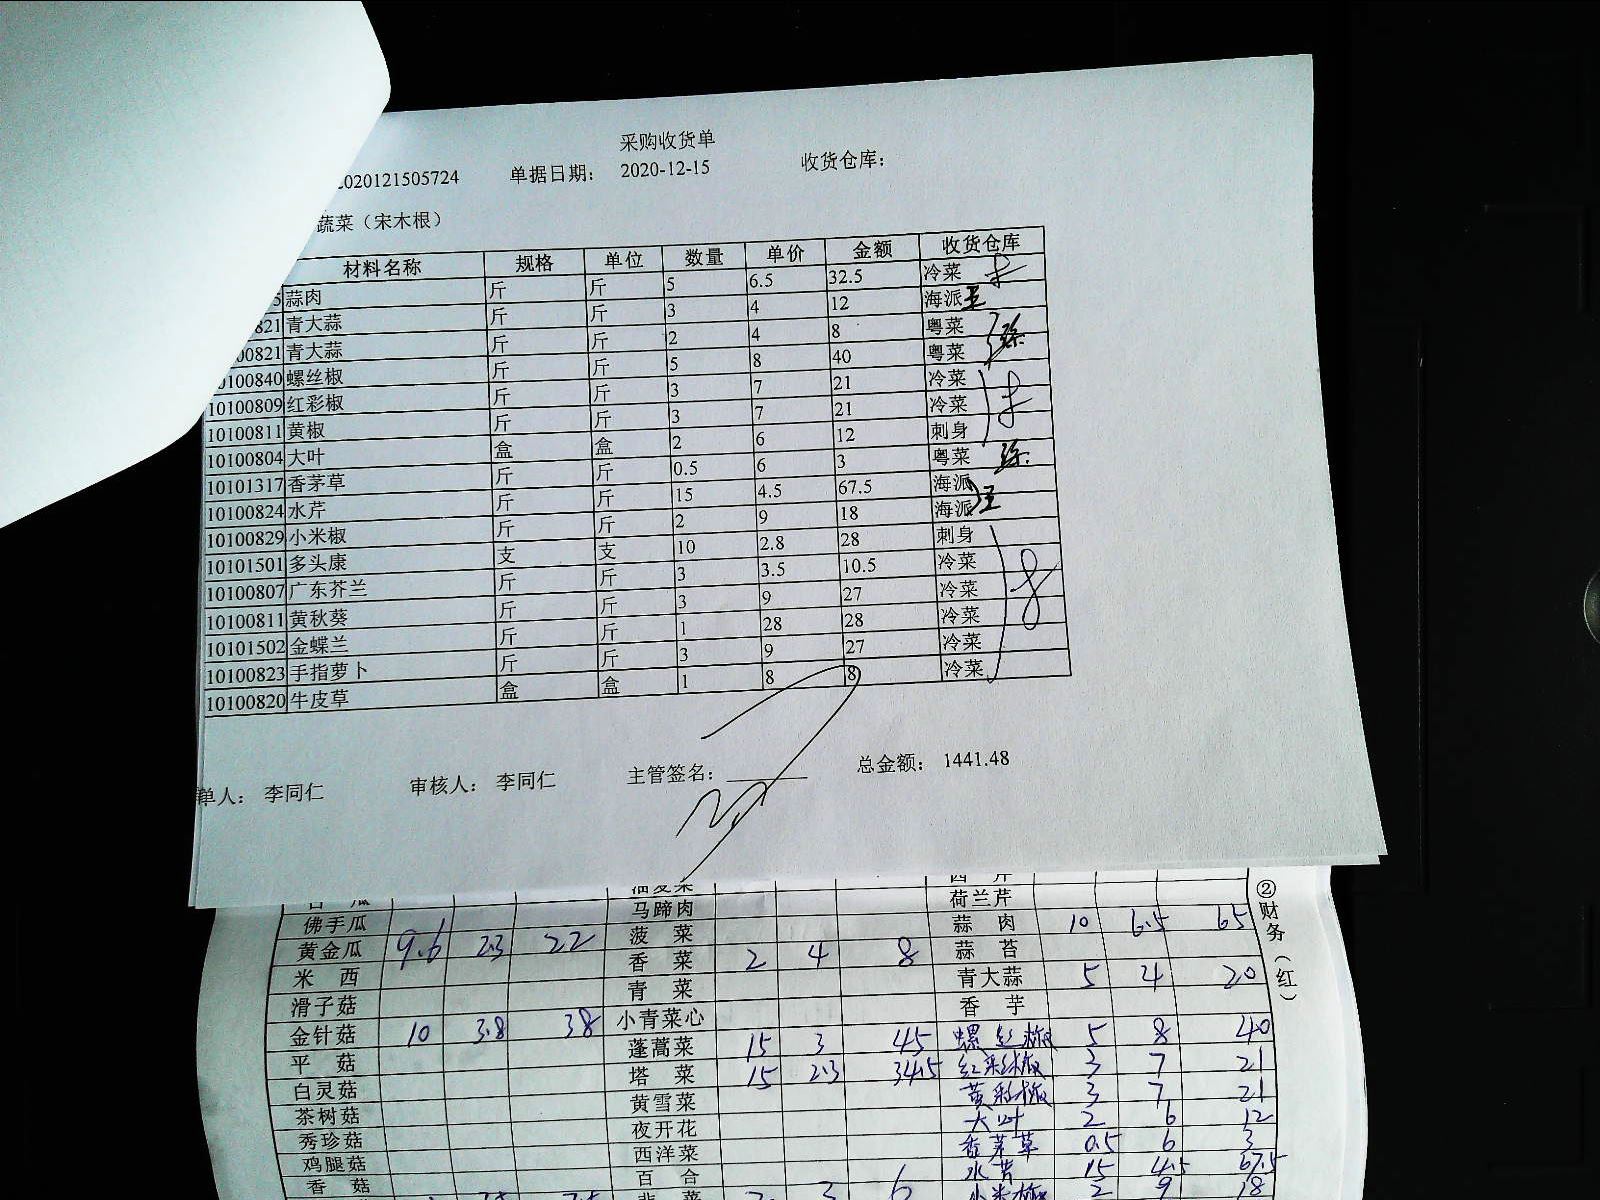 采购收货单
2020121505724 单据日期： 2020-12-15 收货仓库：
蔬菜（宋木根）
材料名称 规格 单位 数量 单价 金额 收货仓库
5 蒜肉 斤 斤 5 6.5 32.5 冷菜
821 青大蒜 斤 斤 3 4 12 海派 王
00821 青大蒜 斤 斤 2 4 8 粤菜
0100840 螺丝椒 斤 斤 5 8 40 粤菜
10100809 红彩椒 斤 斤 3 7 21 冷菜
10100811 黄椒 斤 斤 3 7 21 冷菜
10100804 大叶 盒 盒 2 6 12 刺身
10101317 香茅草 斤 斤 0.5 6 3 粤菜
10100824 水芹 斤 斤 15 4.5 67.5 海派
10100829 小米椒 斤 斤 2 9 18 海派 王
10101501 多头康 支 支 10 2.8 28 刺身
10100807 广东芥兰 斤 斤 3 3.5 10.5 冷菜
10100811 黄秋葵 斤 斤 3 9 27 冷菜
10101502 金蝶兰 斤 斤 1 28 28 冷菜
10100823 手指萝卜 斤 斤 3 9 27 冷菜
10100820 牛皮草 盒 盒 1 8 8 冷菜
单人： 李同仁 审核人： 李同仁 主管签名： 总金额： 1441.48
②财务（红）
油麦菜 西芹
马蹄肉 荷兰芹
佛手瓜 菠菜 蒜肉 10 6.5 65
黄金瓜 9.6 2.3 22 香菜 2 4 8 蒜苔
米西 青菜 青大蒜 5 4 20
滑子菇 小青菜心 香芋
金针菇 10 3.8 38 蓬蒿菜 15 3 45 螺丝椒 5 8 40
平菇 塔菜 15 2.3 34.5 红彩椒 3 7 21
白灵菇 黄雪菜 黄彩椒 3 7 21
茶树菇 夜开花 大叶 2 6 12
秀珍菇 西洋菜 香茅草 0.5 6 3
鸡腿菇 百合 水芹 15 4.5 67.5
香菇 韭菜 3 6 小米椒 2 9 18